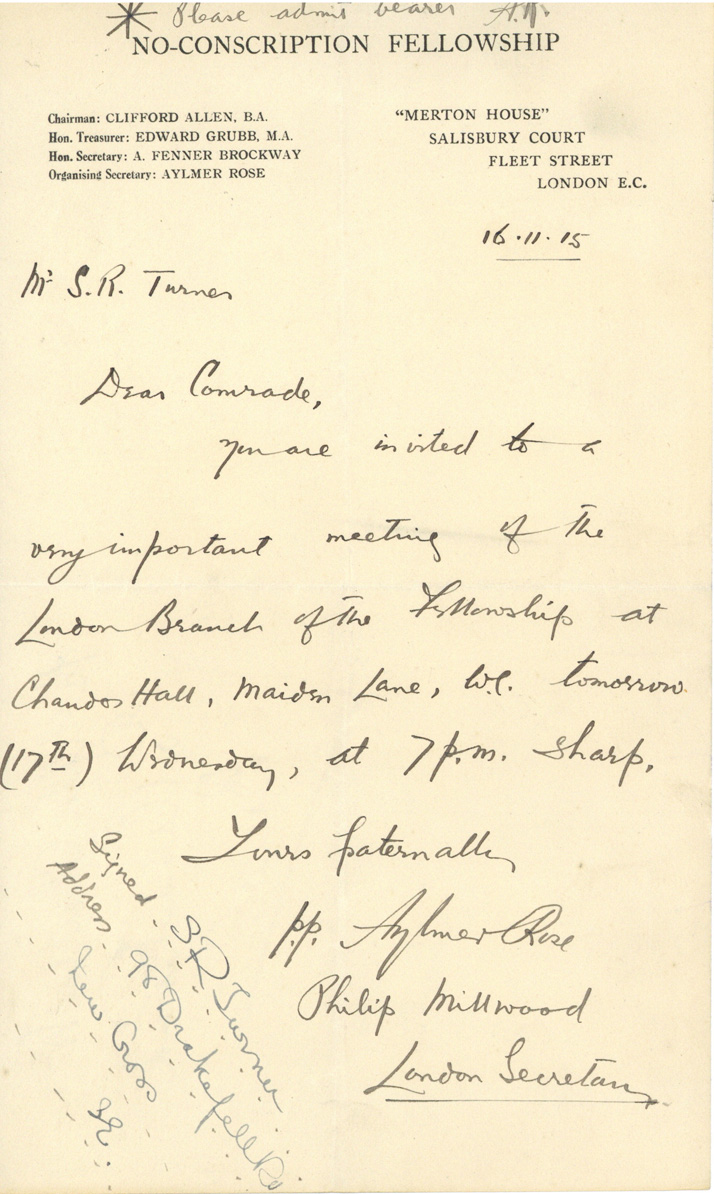 * Please admit bearer A.R.
NO-CONSCRIPTION FELLOWSHIP
Chairman: CLIFFORD ALLEN, B.A.
Hon. Treasurer: EDWARD GRUBB, M.A.
Hon. Secretary: A. FENNER BROCKWAY
Organising Secretary: AYLMER ROSE
"MERTON HOUSE"
SALISBURY COURT
FLEET STREET
LONDON E.C.
16.11.15
Mr S.R. Turner
Dear Comrade,
you are invited to a
very important meeting of the
London Branch of the Fellowship at
Chandos Hall, Maiden Lane, W.C. tomorrow
(17th) Wednesday, at 7 p.m. sharp.
Yours fraternally
p.p. Aylmer Rose
Philip Millwood
London Secretary
Signed. S R Turner
Address. 98 Drakefell Rd
New Cross
SE